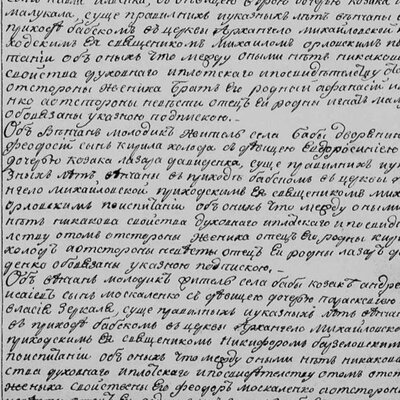 малукала, суще правилнихъ иуказнихъ лѣтъ вѣнчаны
приходѣ бабскомъ вцеркви Архангело михайловской п
ходскимъ Ея священикомъ Михаиломъ орловскимъ по
питаніи обонихъ что между оными нѣтъ никакова
свойства духовнаго иплотскаго ипосвидителству
отстороны жениха братъ Его родній афанасій
ко астороны невести отецъ Ея родній
обовязаны указною подпискою.
Обвѣнчанъ молодикъ житель села бабы дворянинъ
феодосій сынъ кирила холода здѣвицею Евфросиніею
дочерю козака лазара давиденка, суще правилнихъ иука
знихъ лѣтъ, вѣнчаны вприходѣ бабскомъ вцеркви
нгело михайловской приходскимъ Ея священикомъ миха
орловскимъ поиспитаніи обонихъ что между оными
нѣтъ никакова свойства духовнаго иплотскаго ипосвиди
лству отомъ отстороны жениха отецъ Его родны кири
холодъ аотстороны невѣсты отецъ Ея родны лазаръ да
денко обовязаны указною подпискою.
Обвѣнчанъ молодикъ житель села бабы козакъ андре
исаіевъ сынъ москаленко здѣвицею дочерю параскевіею
власія Зеркалѣ, суще правилнихъ иуказнихъ лѣтъ вѣнчан
вприходѣ бабскомъ вцеркви Архангело Михайловско
приходскимъ Ея священикомъ Никифоромъ
поиспитаніи обонихъ что между оными нѣтъ никакова
ства духовнаго иплотскаго ипосвидителству отомъ отст
жениха свойствены Его феодоръ москаленко астороны